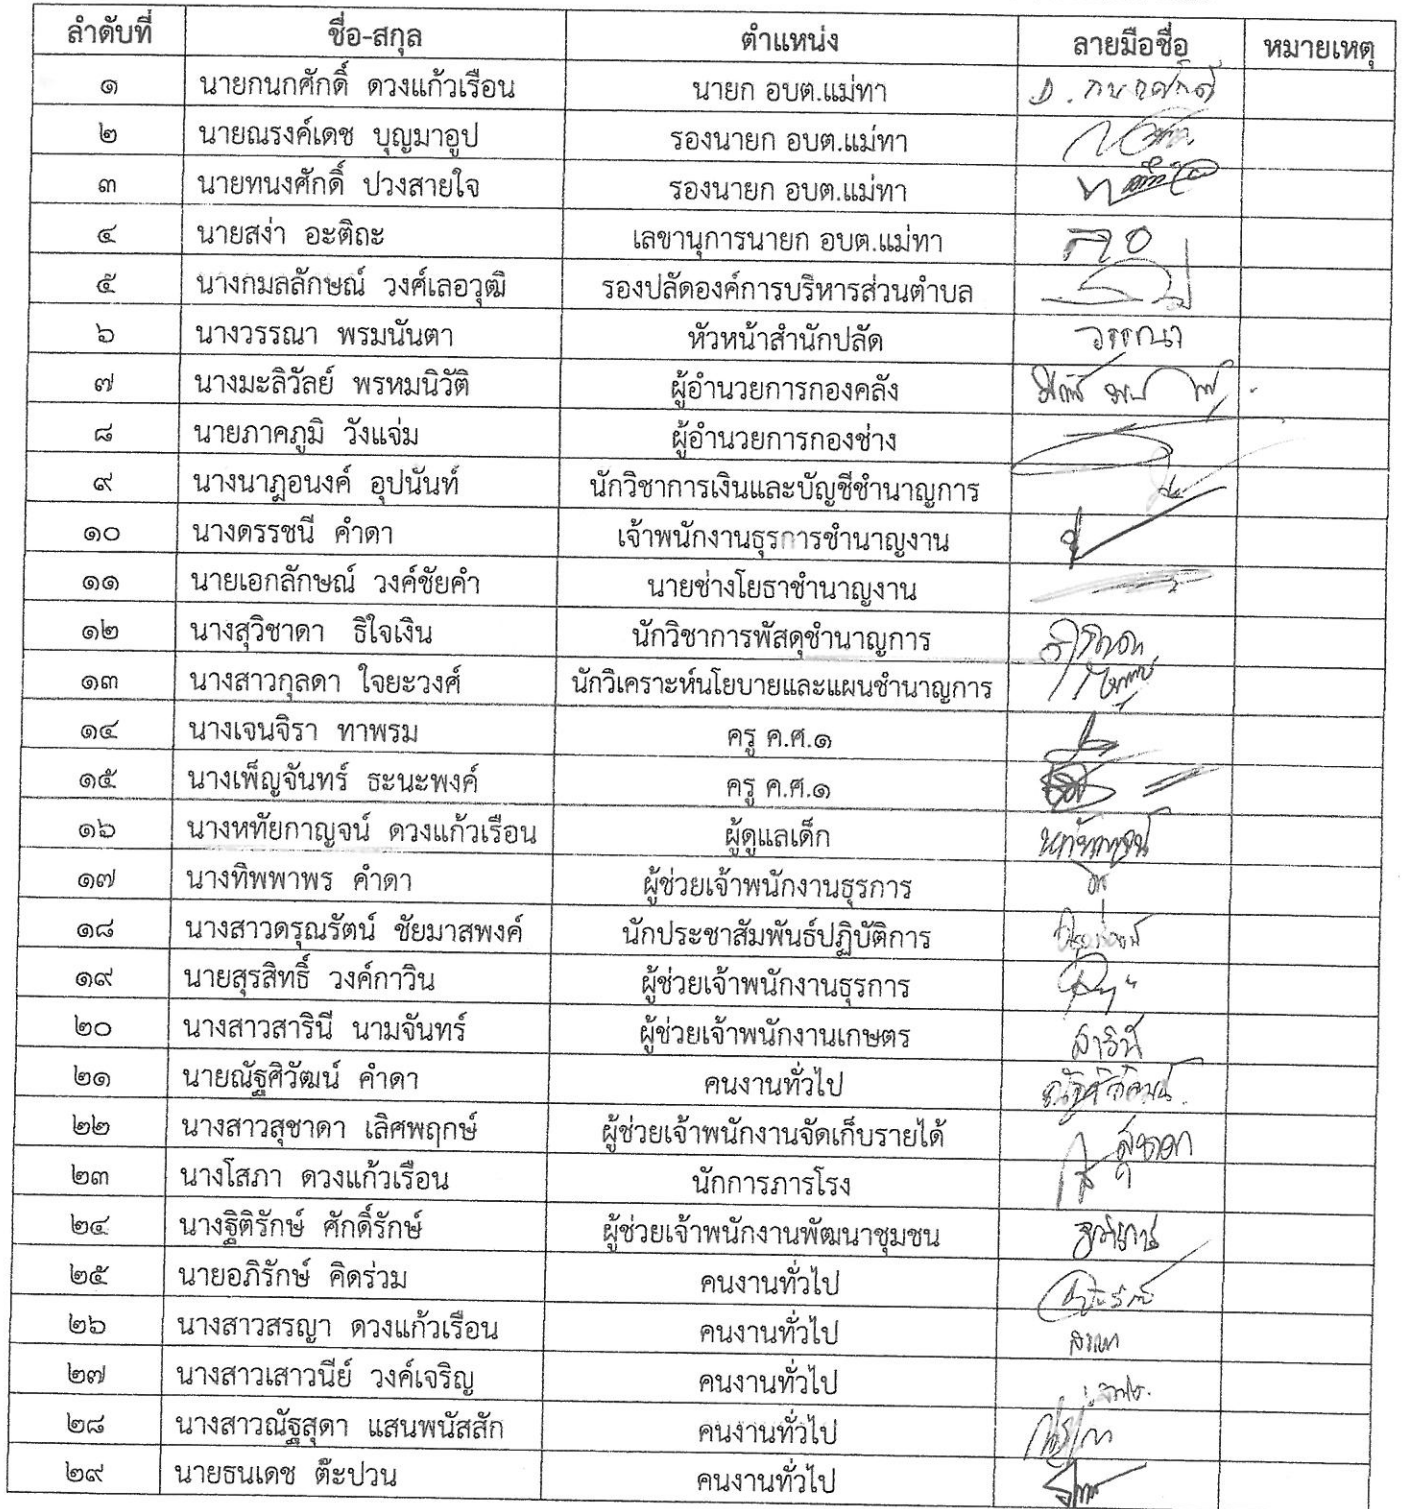 ลำดับที่ ชื่อ-สกุล ตำแหน่ง ลายมือชื่อ หมายเหตุ
๑ นายกนกศักดิ์ ดวงแก้วเรือน นายก อบต.แม่ทา
๒ นายณรงค์เดช บุญมาอูป รองนายก อบต.แม่ทา
๓ นายทนงศักดิ์ ปวงสายใจ รองนายก อบต.แม่ทา
๔ นายสง่า อะติถะ เลขานุการนายก อบต.แม่ทา
๕ นางกมลลักษณ์ วงศ์เลอวุฒิ รองปลัดองค์การบริหารส่วนตำบล
๖ นางวรรณา พรมนันตา หัวหน้าสำนักปลัด วรรณา
๗ นางมะลิวัลย์ พรหมนิวัติ ผู้อำนวยการกองคลัง
๘ นายภาคภูมิ วังแจ่ม ผู้อำนวยการกองช่าง
๙ นางนาฎอนงค์ อุปนันท์ นักวิชาการเงินและบัญชีชำนาญการ
๑๐ นางดรรชนี คำดา เจ้าพนักงานธุรการชำนาญงาน
๑๑ นายเอกลักษณ์ วงค์ชัยคำ นายช่างโยธาชำนาญงาน
๑๒ นางสุวิชาดา ธิใจเงิน นักวิชาการพัสดุชำนาญการ
๑๓ นางสาวกุลดา ใจยะวงศ์ นักวิเคราะห์นโยบายและแผนชำนาญการ
๑๔ นางเจนจิรา ทาพรม ครู ค.ศ.๑
๑๕ นางเพ็ญจันทร์ ธะนะพงค์ ครู ค.ศ.๑
๑๖ นางหทัยกาญจน์ ดวงแก้วเรือน ผู้ดูแลเด็ก หทัยกาญจน์
๑๗ นางทิพพาพร คำดา ผู้ช่วยเจ้าพนักงานธุรการ
๑๘ นางสาวดรุณรัตน์ ชัยมาสพงค์ นักประชาสัมพันธ์ปฏิบัติการ
๑๙ นายสุรสิทธิ์ วงค์กาวิน ผู้ช่วยเจ้าพนักงานธุรการ
๒๐ นางสาวสารินี นามจันทร์ ผู้ช่วยเจ้าพนักงานเกษตร สารินี
๒๑ นายณัฐศิวัฒน์ คำดา คนงานทั่วไป
๒๒ นางสาวสุชาดา เลิศพฤกษ์ ผู้ช่วยเจ้าพนักงานจัดเก็บรายได้ สุชาดา
๒๓ นางโสภา ดวงแก้วเรือน นักการภารโรง
๒๔ นางฐิติรักษ์ ศักดิ์รักษ์ ผู้ช่วยเจ้าพนักงานพัฒนาชุมชน
๒๕ นายอภิรักษ์ คิดร่วม คนงานทั่วไป
๒๖ นางสาวสรญา ดวงแก้วเรือน คนงานทั่วไป
๒๗ นางสาวเสาวนีย์ วงค์เจริญ คนงานทั่วไป
๒๘ นางสาวณัฐสุดา แสนพนัสสัก คนงานทั่วไป
๒๙ นายธนเดช ต๊ะปวน คนงานทั่วไป